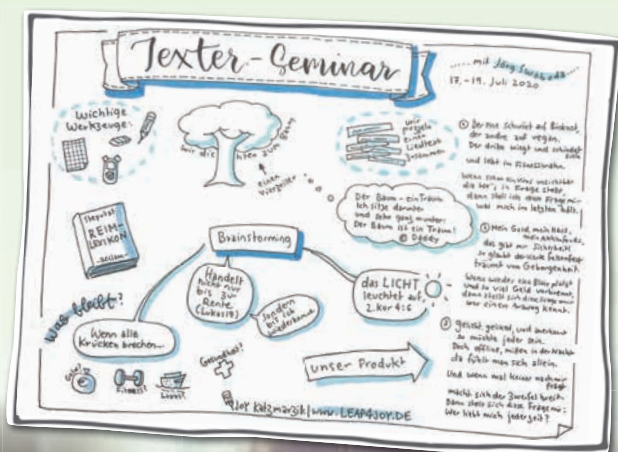 Texter-Seminar
mit Jörg Swoboda
17.-19. Juli 2020
Wichtige
Werkzeuge:
wir dichten zum Baum
einen
Vierzeiler
wir
puzzeln
einen
Liedtext
zusammen
Der Baum - ein Traum
Ich sitze darunter
und sehe ganz munter:
Der Baum ist ein Traum!
© Daddy
Steputat
REIM-
LEXIKON
Reclam
Brainstorming
Handelt
nicht nur
bis zur
Rente
(Lukas 19)
sondern
bis ich
wiederkomme
das LICHT
leuchtet auf,
2.Kor 4:6
Was bleibt?
Wenn alle
Krücken brechen...
Geld?
Fitness?
Gesundheit?
unser Produkt
Joy Katzmarzik | www.LEAP4JOY.DE
① Der eine schwört auf Biokost,
der andre auf vegan.
Der dritte wiegt und schindet
sich
und lebt im Fitnesswahn.
in Frage stellt,
dann stell ich diese Frage mir:
was mich im letzten hält.
② Mein Geld, mein Haus,
mein Aktienfonds,
das gibt mir Sicherheit
so glaubt der
träumt von Geborgenheit.
Wenn wieder eine Blase platzt
und so viel Geld verbrennt,
dann stellt sich diese Frage mir:
wer einen Ausweg kennt.
③ geliked, und
so möchte jeder sein.
Doch offline, mitten in der Nacht
da fühlt man sich allein.
Und wenn mal keiner nach mir
fragt
macht sich der Zweifel breit.
Dann stellt sich diese Frage mir:
Wer liebt mich jederzeit?